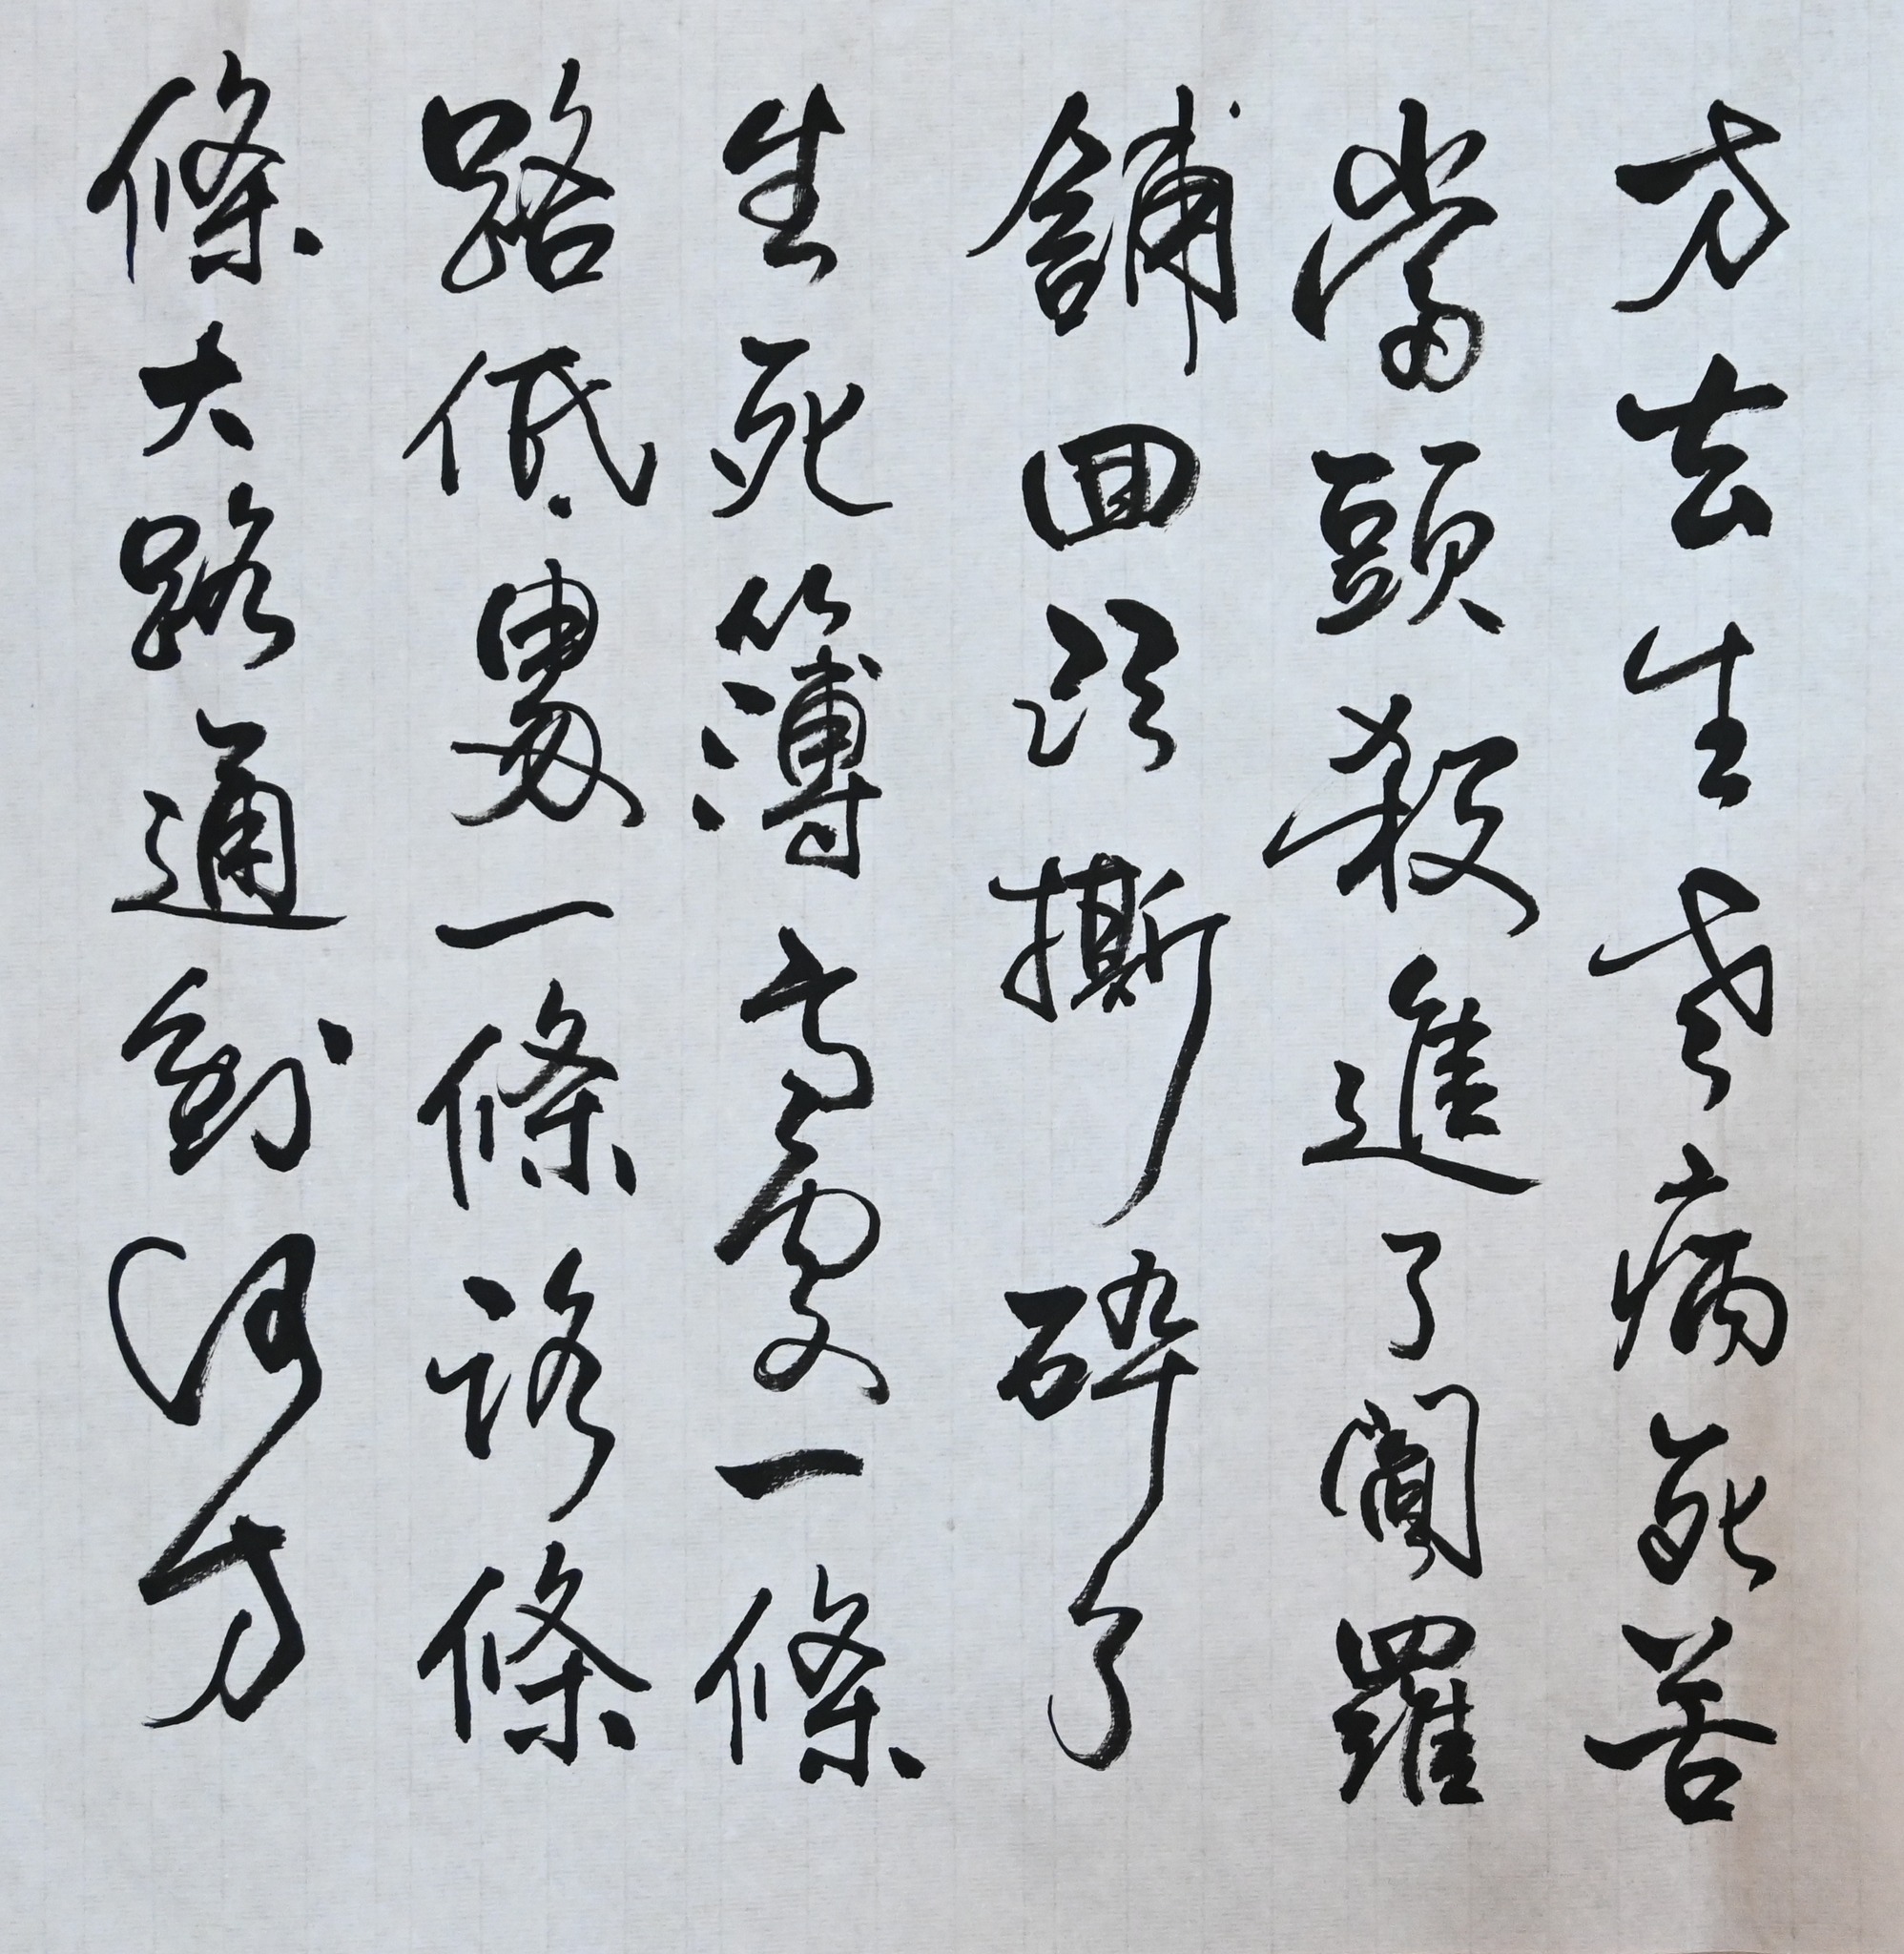 方去生老病死苦
當頭殺進了閻羅
舖回頭撕碎了
生死簿高處一條
路低處一條路條
條大路通到何方